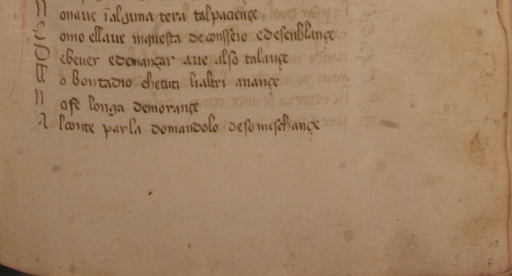 N onaue ī alguna tera tal paciençe
C omo ellaue inquesta de conseio e desenblançe
D ebeuer e demançar aue al so talançe
T o bontadio che tuti li altri auançe
N o fe longa demorançe
A l conte parla domandolo de so meschançe